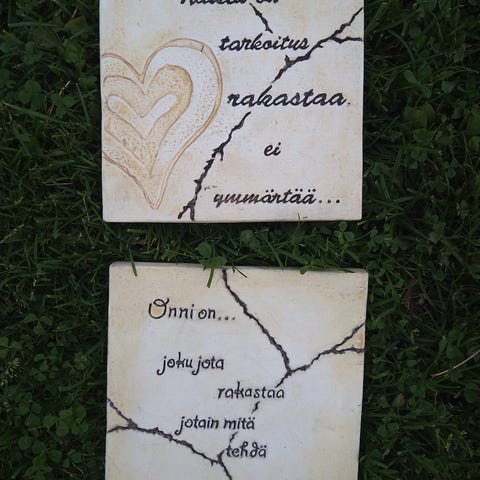 on
tarkoitus
rakastaa,
ei
ymmärtää...
Onni on...
joku jota
rakastaa
jotain mitä
tehdä